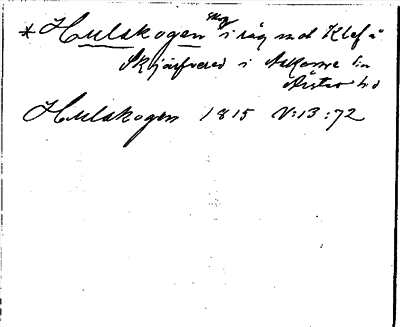 * Hulskogen skog i råg mot Klef å
Skjärfvered i Askome sn
Årstad hd
Hulskogen 1815 V:13:72